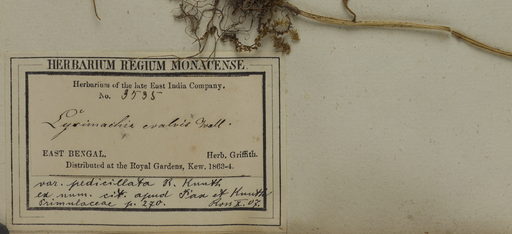 HERBARIUM REGIUM MONACENSE.
Herbarium of the late East India Company.
No. 3535
Lysimachia evalvis Wall.
EAST BENGAL. Herb. Griffith.
Distributed at the Royal Gardens, Kew. 1863-4.
var. pedicillata R. Knuth
ex num. cit. apud Pax et Knuth
Primulaceae p. 270.